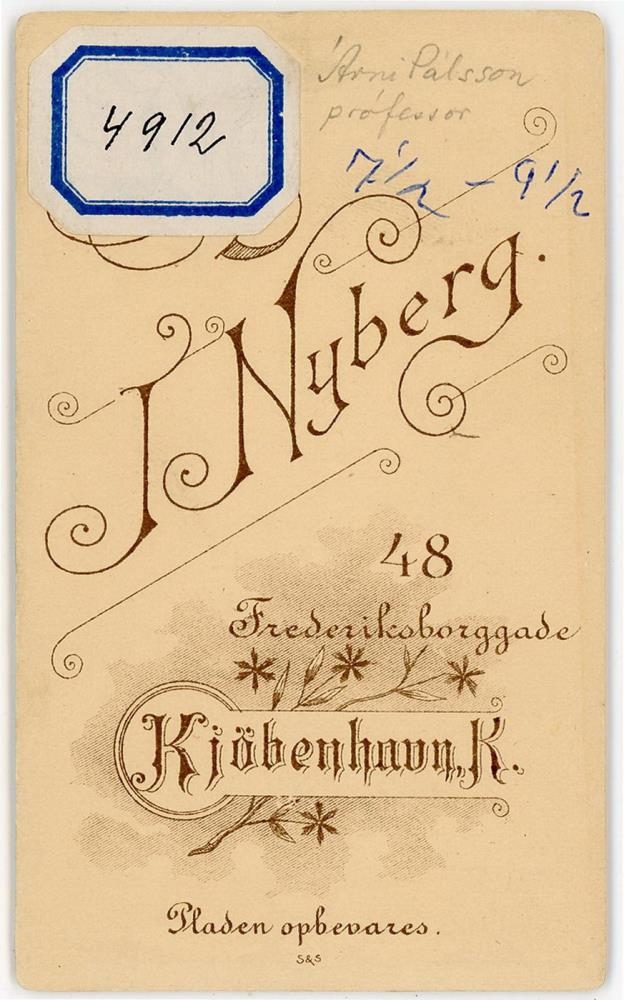 4912
Árni Pálsson
prófessor
7 1/2 - 9 1/2
J Nyberg.
48
Frederiksborggade
Kjöbenhavn, K.
Pladen opbevares.
S&S